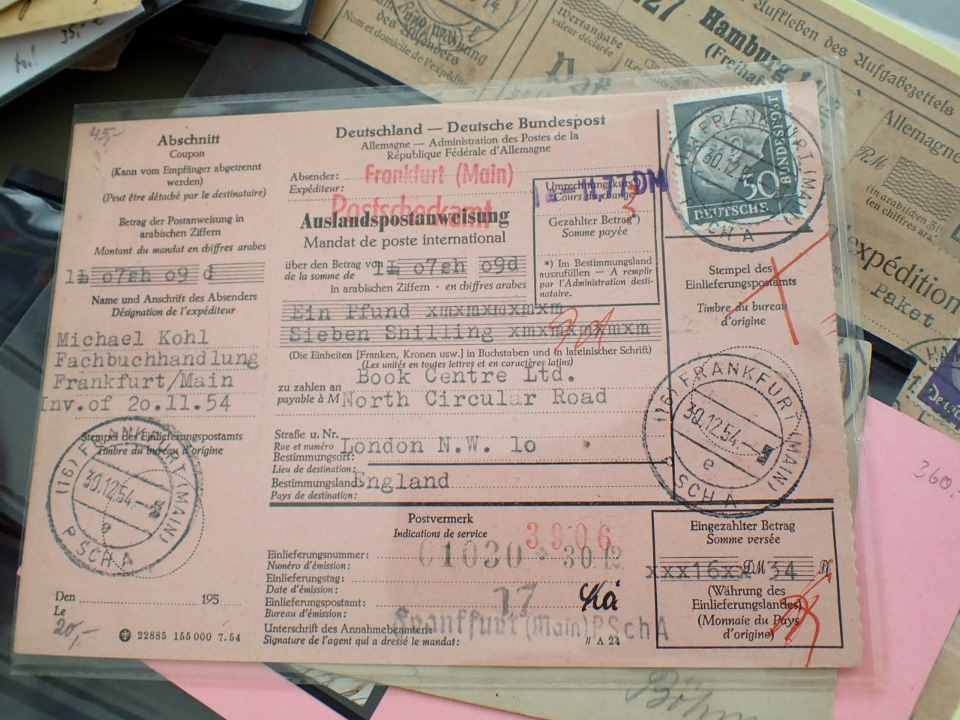 45,-
Abschnitt
Coupon
(Kann vom Empfänger abgetrennt
werden)
(Peut être détaché par le destinataire)
Betrag der Postanweisung in
arabischen Ziffern
Montant du mandat en chiffres arabes
1L o7sh o9 d
Name und Anschrift des Absenders
Désignation de l'expéditeur
Michael Kohl
Fachbuchhandlung
Frankfurt/Main
Inv.of 2o.11.54
Stempel des Einlieferungspostamts
Timbre du bureau d'origine
(16) FRANKFURT (MAIN)
30.12.54.
e
PSCHA
Den 195
Le
20,-
22885 155 000 7. 54
Deutschland — Deutsche Bundespost
Allemagne — Administration des Postes de la
République Fédérale d'Allemagne
Absender:
Expéditeur:
Frankfurt (Main)
Postscheckamt
Auslandspostanweisung
Mandat de poste international
über den Betrag von
de la somme de
1L o7sh o9d
in arabischen Ziffern · en chiffres arabes
Ein Pfund xmxmxmxmxm
Sieben Shilling xmxmxmxmxm
(Die Einheiten [Franken, Kronen usw.] in Buchstaben und in lateinischer Schrift)
(Les unités en toutes lettres et en caractères latins)
zu zahlen an
payable à M
Book Centre Ltd.
North Circular Road
Straße u. Nr.
Rue et numéro
London N.W. 1o
Bestimmungsort:
Lieu de destination:
Bestimmungsland:
Pays de destination:
England
Umrechnungskurs
Cours du change
Gezahlter Betrag*)
Somme payée
*) Im Bestimmungsland
auszufüllen — A remplir
par l'Administration desti-
nataire.
FRANKFURT (MAIN)
30.12.54
PSCHA
DEUTSCHE
BUNDESPOST
50
Stempel des
Einlieferungspostamts
Timbre du bureau
d'origine
(16) FRANKFURT (MAIN)
30.12.54.
e
PSCHA
Postvermerk
Indications de service
3906
Einlieferungsnummer:
Numéro d'émission:
01030 * 30 12
Einlieferungstag:
Date d'émission:
Einlieferungspostamt:
Bureau d'émission:
17
Unterschrift des Annahmebeamten
Signature de l'agent qui a dressé le mandat:
Frankfurt (Main) PSchA
A 24
Eingezahlter Betrag
Somme versée
xxx16xx DM 34 Pf
(Währung des
Einlieferungslandes)
(Monnaie du Pays
d'origine)
Name und Wohnung
des Absenders
Nom et domicile de l'expéditeur
Wertangabe
valeur déclarée
Hamburg
(Freihaf
Aufkleben des Aufgabezettels
Allemagne
RM
(in arabischen Zi
(en chiffres ara
expédition
Paket
360,
Böhm
35,-